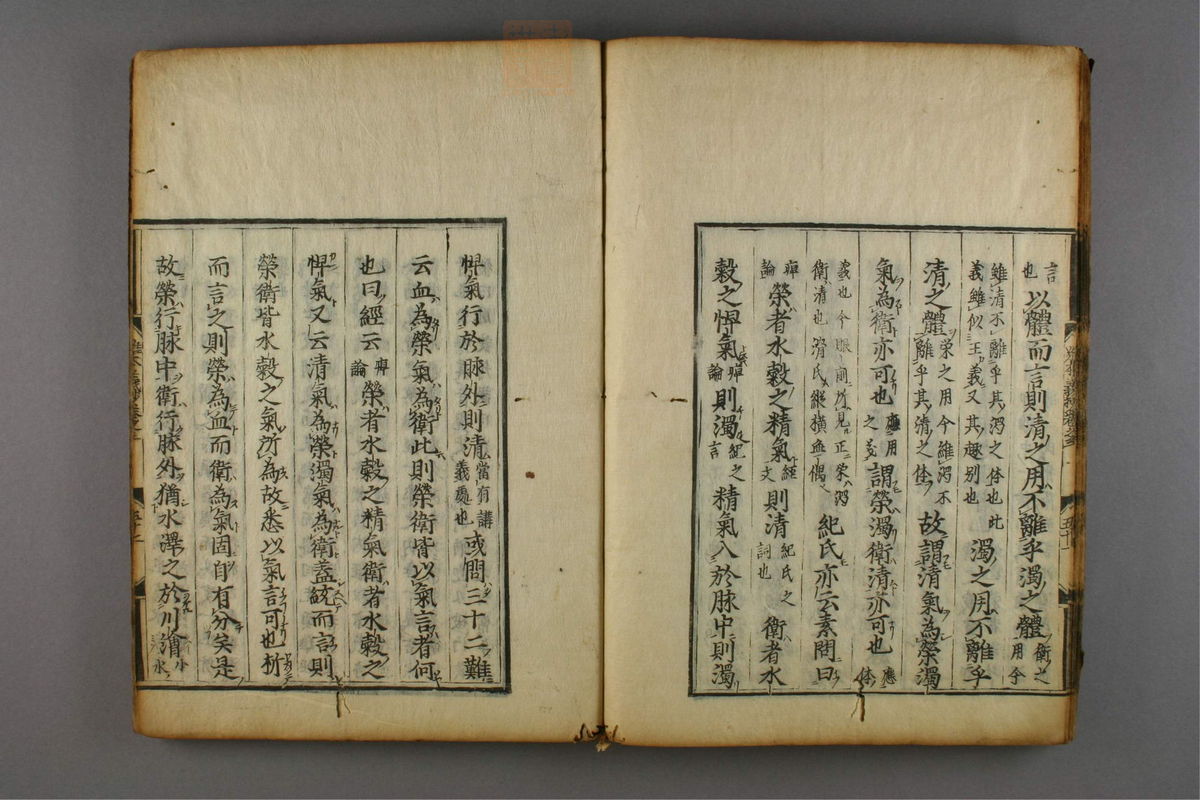 言也 以體而言則清之用不離乎濁之體 衛之用今
雖清不離乎其濁之体也此義雖似王義又其趣别也 濁之用不離乎
清之體 榮之用今雖濁不離乎其清之体 故謂清氣為榮濁
氣為衛亦可也 應用之義 謂榮濁衛清亦可也 應体
義也今眼前所見正榮濁衛清也滑氏縱横無偶 紀氏亦云素問曰
痺論 榮者水穀之精氣 經文 則清 紀氏之詞也 衛者水
穀之悍氣 痺論 則濁 紀之言 精氣入於脉中則濁
悍氣行於脉外則清 當有講義處也 或問三十二難
云血為榮氣為衛此則榮衛皆以氣言者何
也曰經云 痺論 榮者水穀之精氣衛者水穀之
悍氣又云清氣為榮濁氣為衛蓋統而言則
榮衛皆水穀之氣所為故悉以氣言可也析
而言之則榮為血而衛為氣固自有分矣是
故榮行脉中衛行脉外猶水澤之於川澮 小水